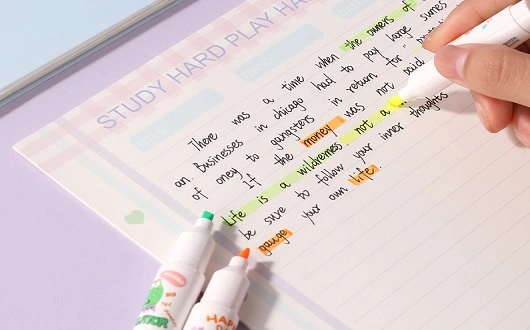 STUDY HARD PLAY HA
There was a time when the owners of
an. Businesses in chicago had to pay large sumes
of oney to gangsters in return for
If the money was not paid
Life is a wilderness not a
be sure to follow your inner thoughts
gauge your own life.
HAP